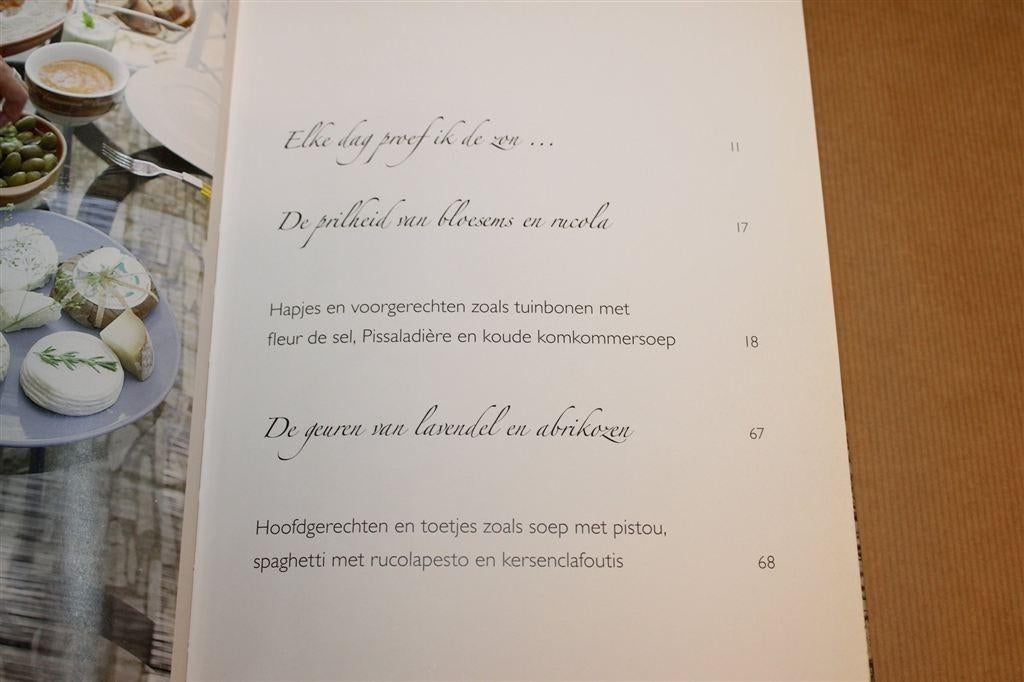 Elke dag proef ik de zon ... 11
De prilheid van bloesems en rucola 17
Hapjes en voorgerechten zoals tuinbonen met
fleur de sel, Pissaladière en koude komkommersoep 18
De geuren van lavendel en abrikozen 67
Hoofdgerechten en toetjes zoals soep met pistou,
spaghetti met rucolapesto en kersenclafoutis 68